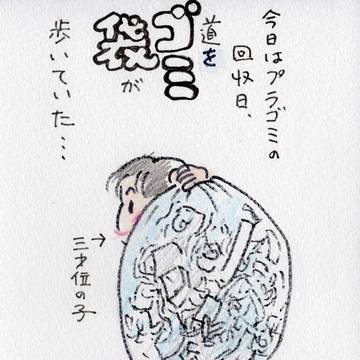 今日はプラゴミの
回収日、
道を
ゴミ
袋が
歩いていた…
三才位の子